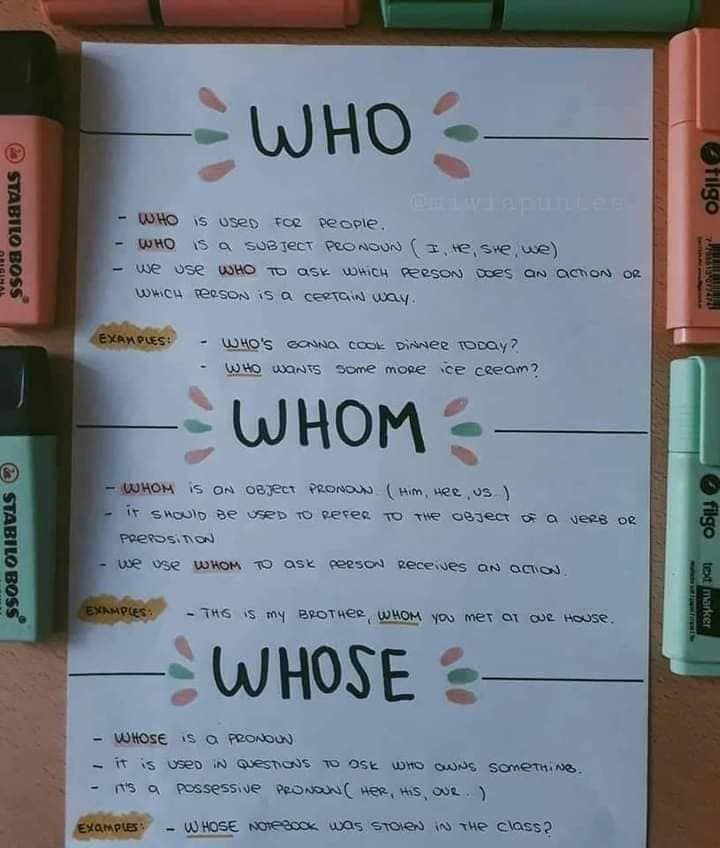 WHO
@miwiapuntes
- WHO IS USED FOR PEOPLE.
- WHO IS A SUBJECT PRONOUN ( I, HE, SHE, WE)
- WE USE WHO TO ASK WHICH PERSON DOES AN ACTION OR
WHICH PERSON IS A CERTAIN WAY.
EXAMPLES: - WHO'S GONNA COOK DINNER TODAY?
- WHO WANTS SOME MORE ICE CREAM?
WHOM
- WHOM IS AN OBJECT PRONOUN. ( HIM, HER, US...)
- IT SHOULD BE USED TO REFER TO THE OBJECT OF A VERB OR
PREPOSITION
- WE USE WHOM TO ASK PERSON RECEIVES AN ACTION.
EXAMPLES: - THIS IS MY BROTHER, WHOM YOU MET AT OUR HOUSE.
WHOSE
- WHOSE IS A PRONOUN
- IT IS USED IN QUESTIONS TO ASK WHO OWNS SOMETHING.
- IT'S A POSSESSIVE PRONOUN( HER, HIS, OUR...)
EXAMPLES: - WHOSE NOTEBOOK WAS STOLEN IN THE CLASS?
STABILO BOSS
ORIGINAL
STABILO BOSS
filgo
filgo
text marker